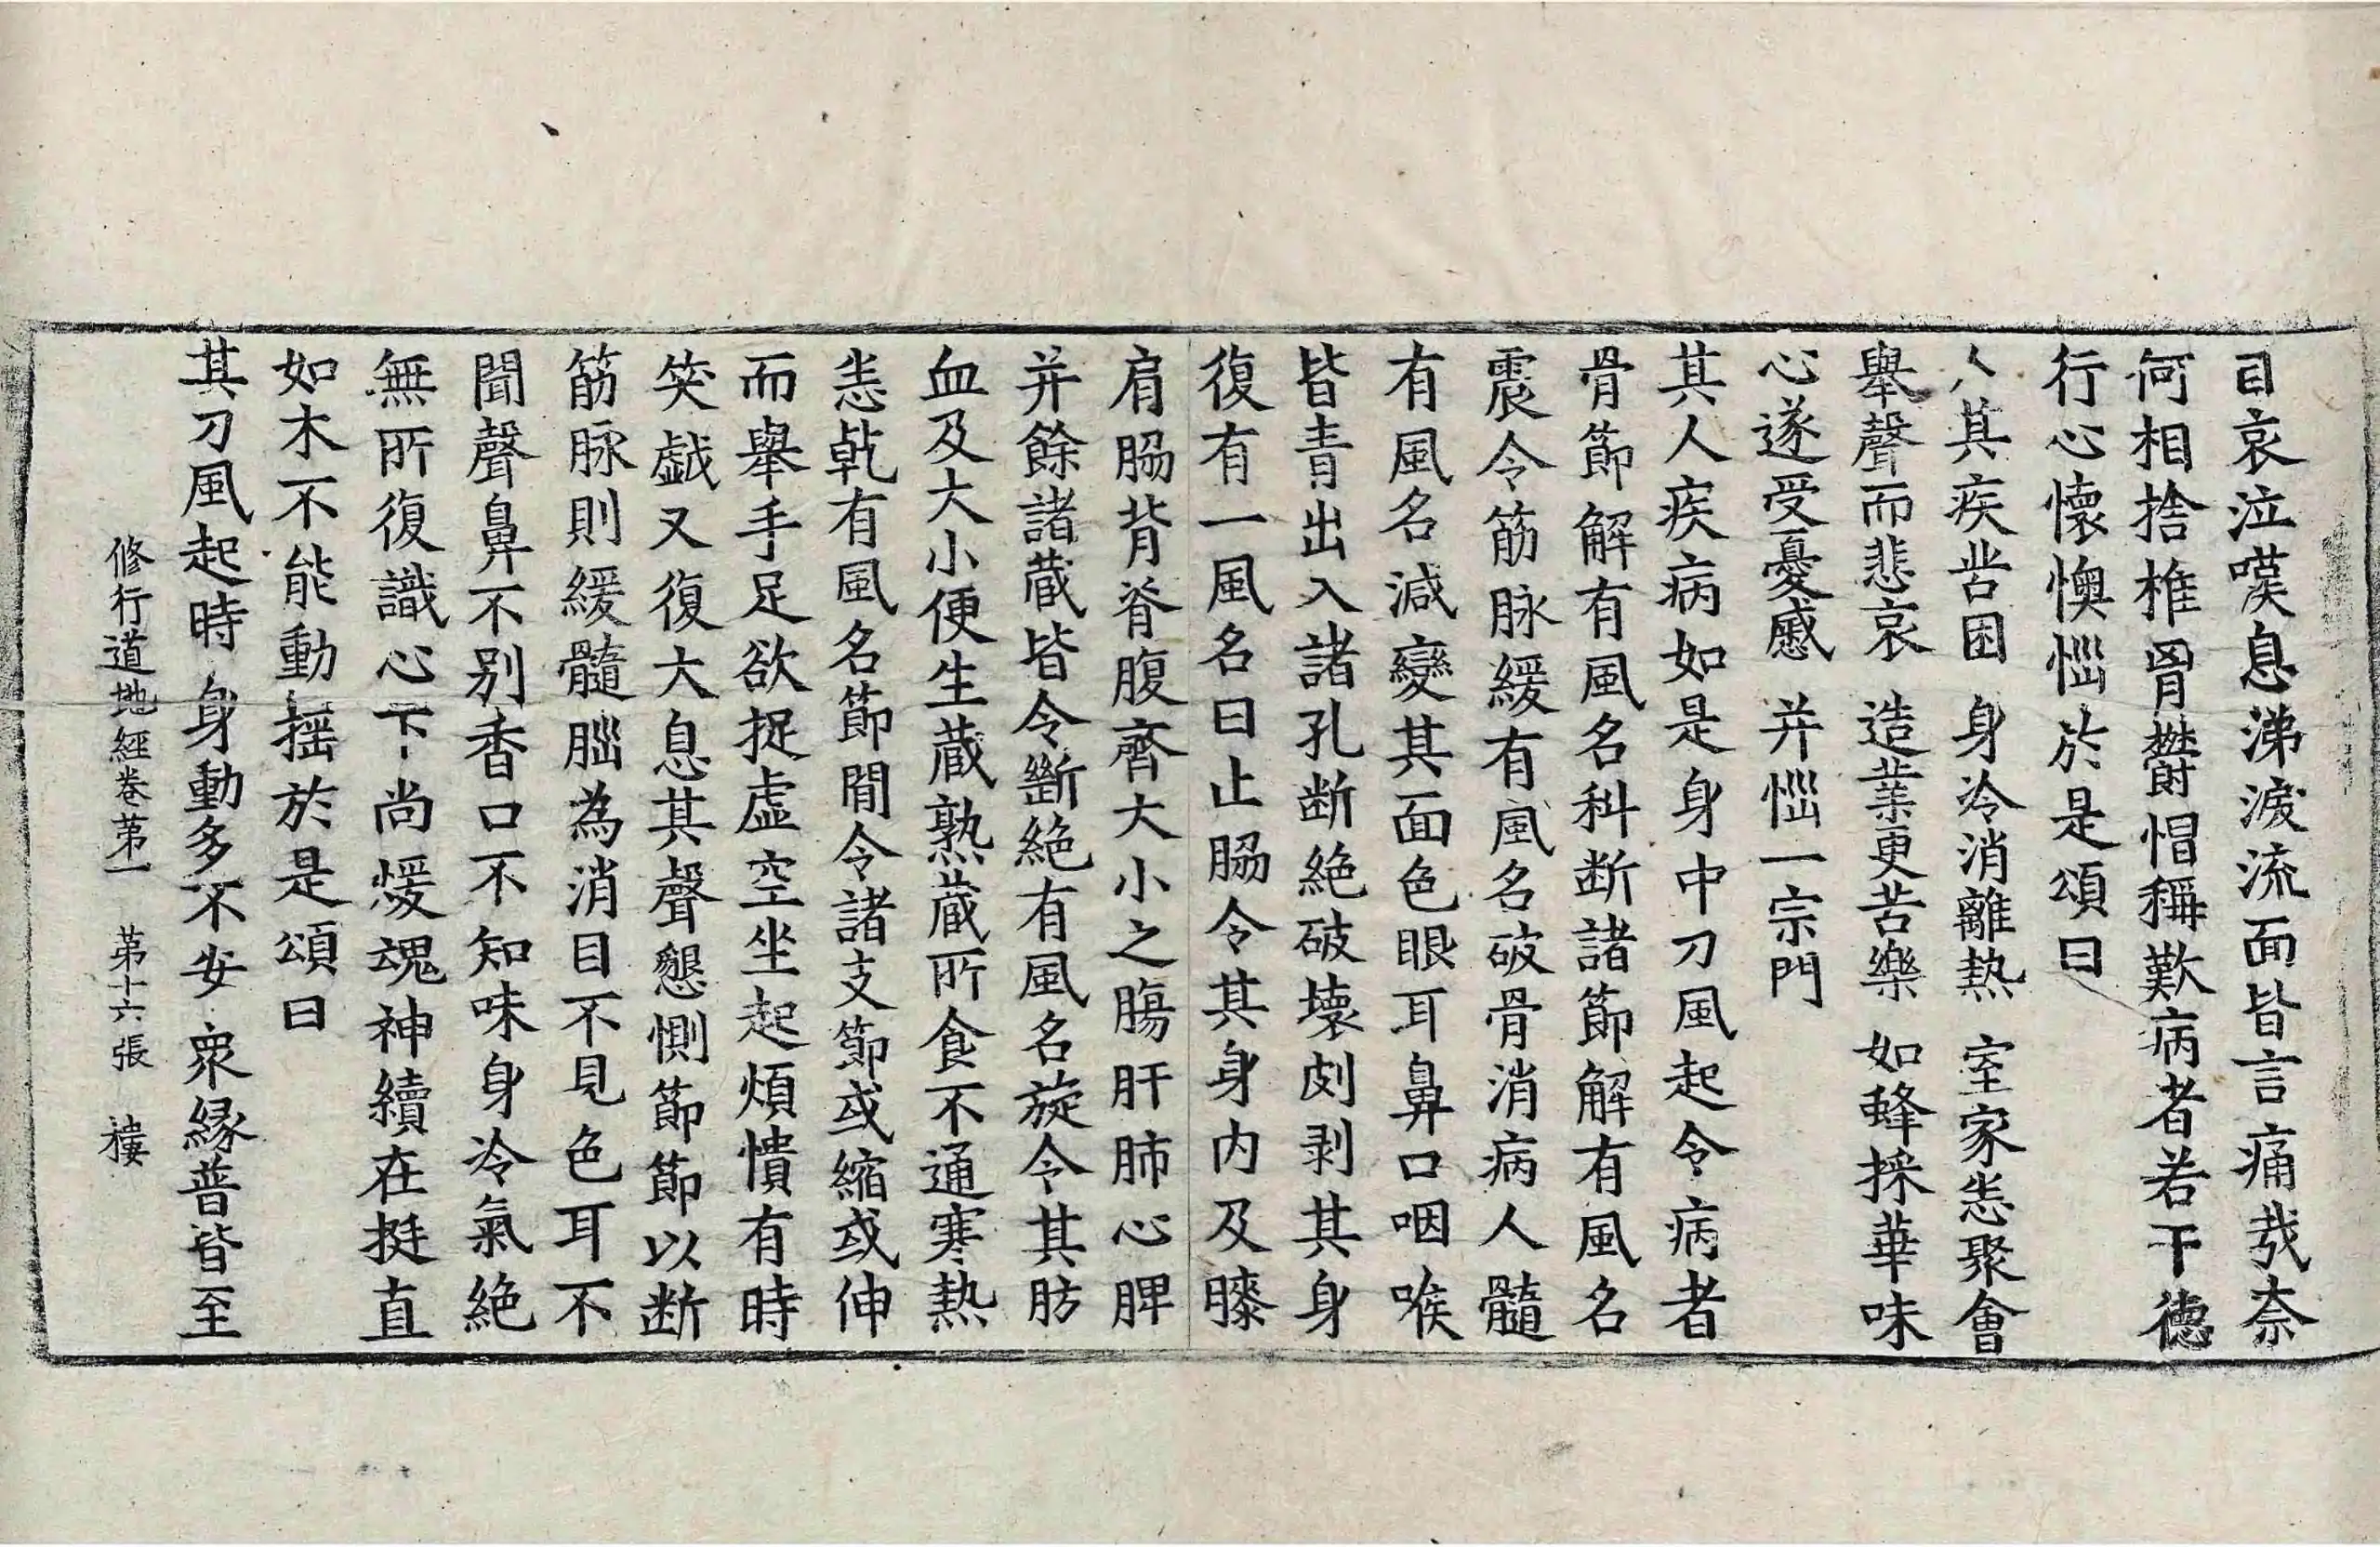 目哀泣嘆息涕淚流面皆言痛㢤柰
何相捨椎胷欝㥜稱歎病者若干德
行心懷懊惱於是頌曰
人其疾苦困　身冷消離熱　室家悉聚會
舉聲而悲哀　造業更苦樂　如蜂採華味
心遂受憂慼　并惱一宗門
其人疾病如是身中刀風起令病者
骨節解有風名科断諸節解有風名
震令筋脉緩有風名破骨消病人髓
有風名減變其面色眼耳鼻口咽喉
皆青出入諸孔断絕破壞刻剥其身
復有一風名曰止脇令其身內及膝
肩脇背脊腹齊大小之膓肝肺心脾
并餘諸蔵皆令斷絕有風名旋令其肪
血及大小便生蔵熟蔵所食不通寒熱
悉乾有風名節間令諸支節或縮或伸
而舉手足欲捉虛空坐起煩憒有時
笑戲又復大息其聲懇惻節節以断
筋脉則緩髓腦為消目不見色耳不
聞聲鼻不別香口不知味身冷氣絕
無所復識心下尚煖魂神續在挺直
如木不能動揺於是頌曰
其刀風起時　身動多不安　衆縁普皆至
修行道地經卷第一　第十六張　樓